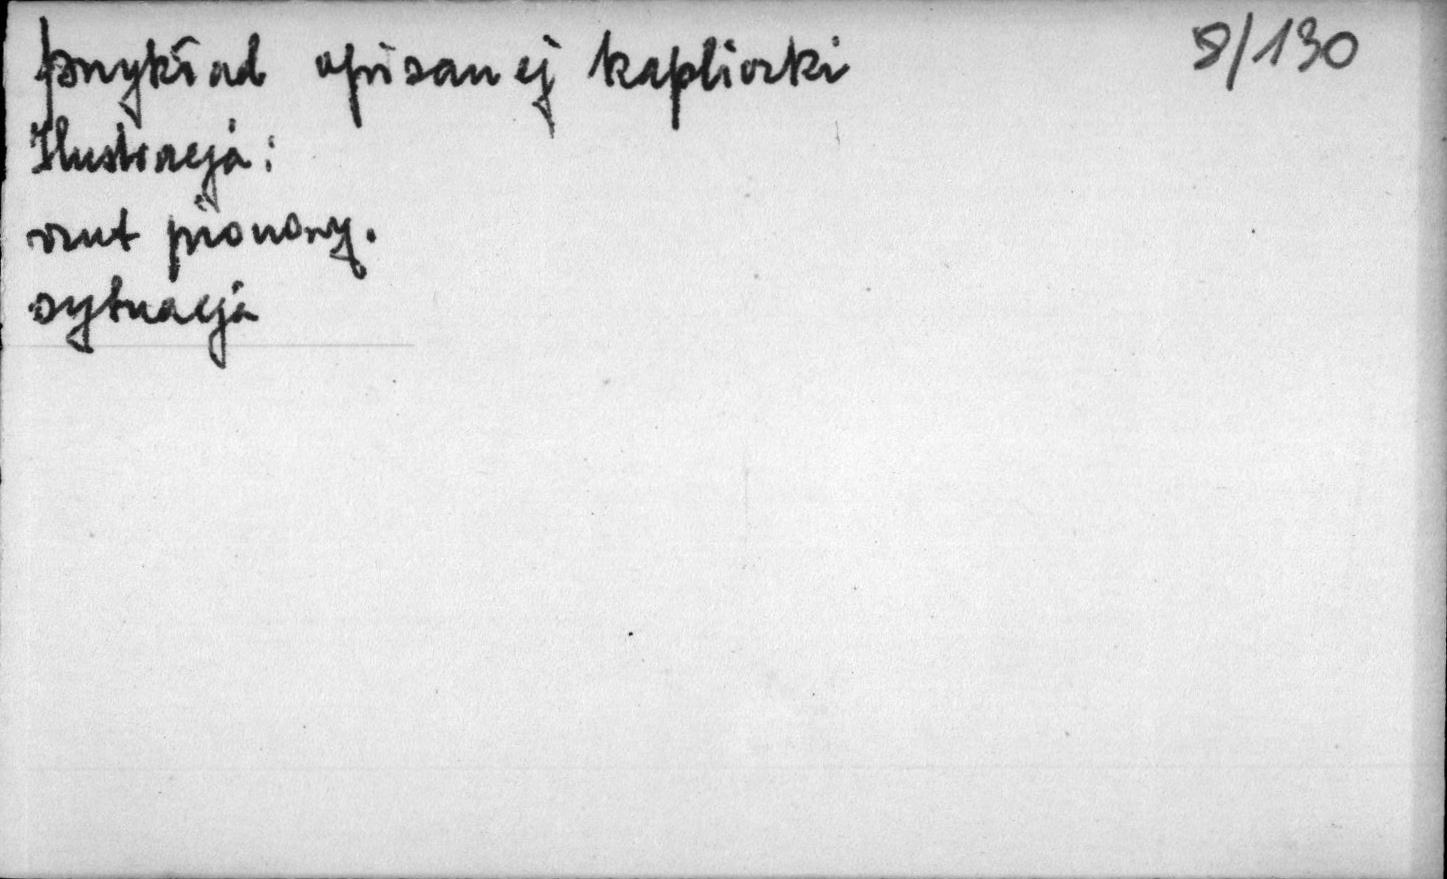 przykład opisanej kapliczki 8/130
Ilustracja:
rzut pionowy.
sytuacja